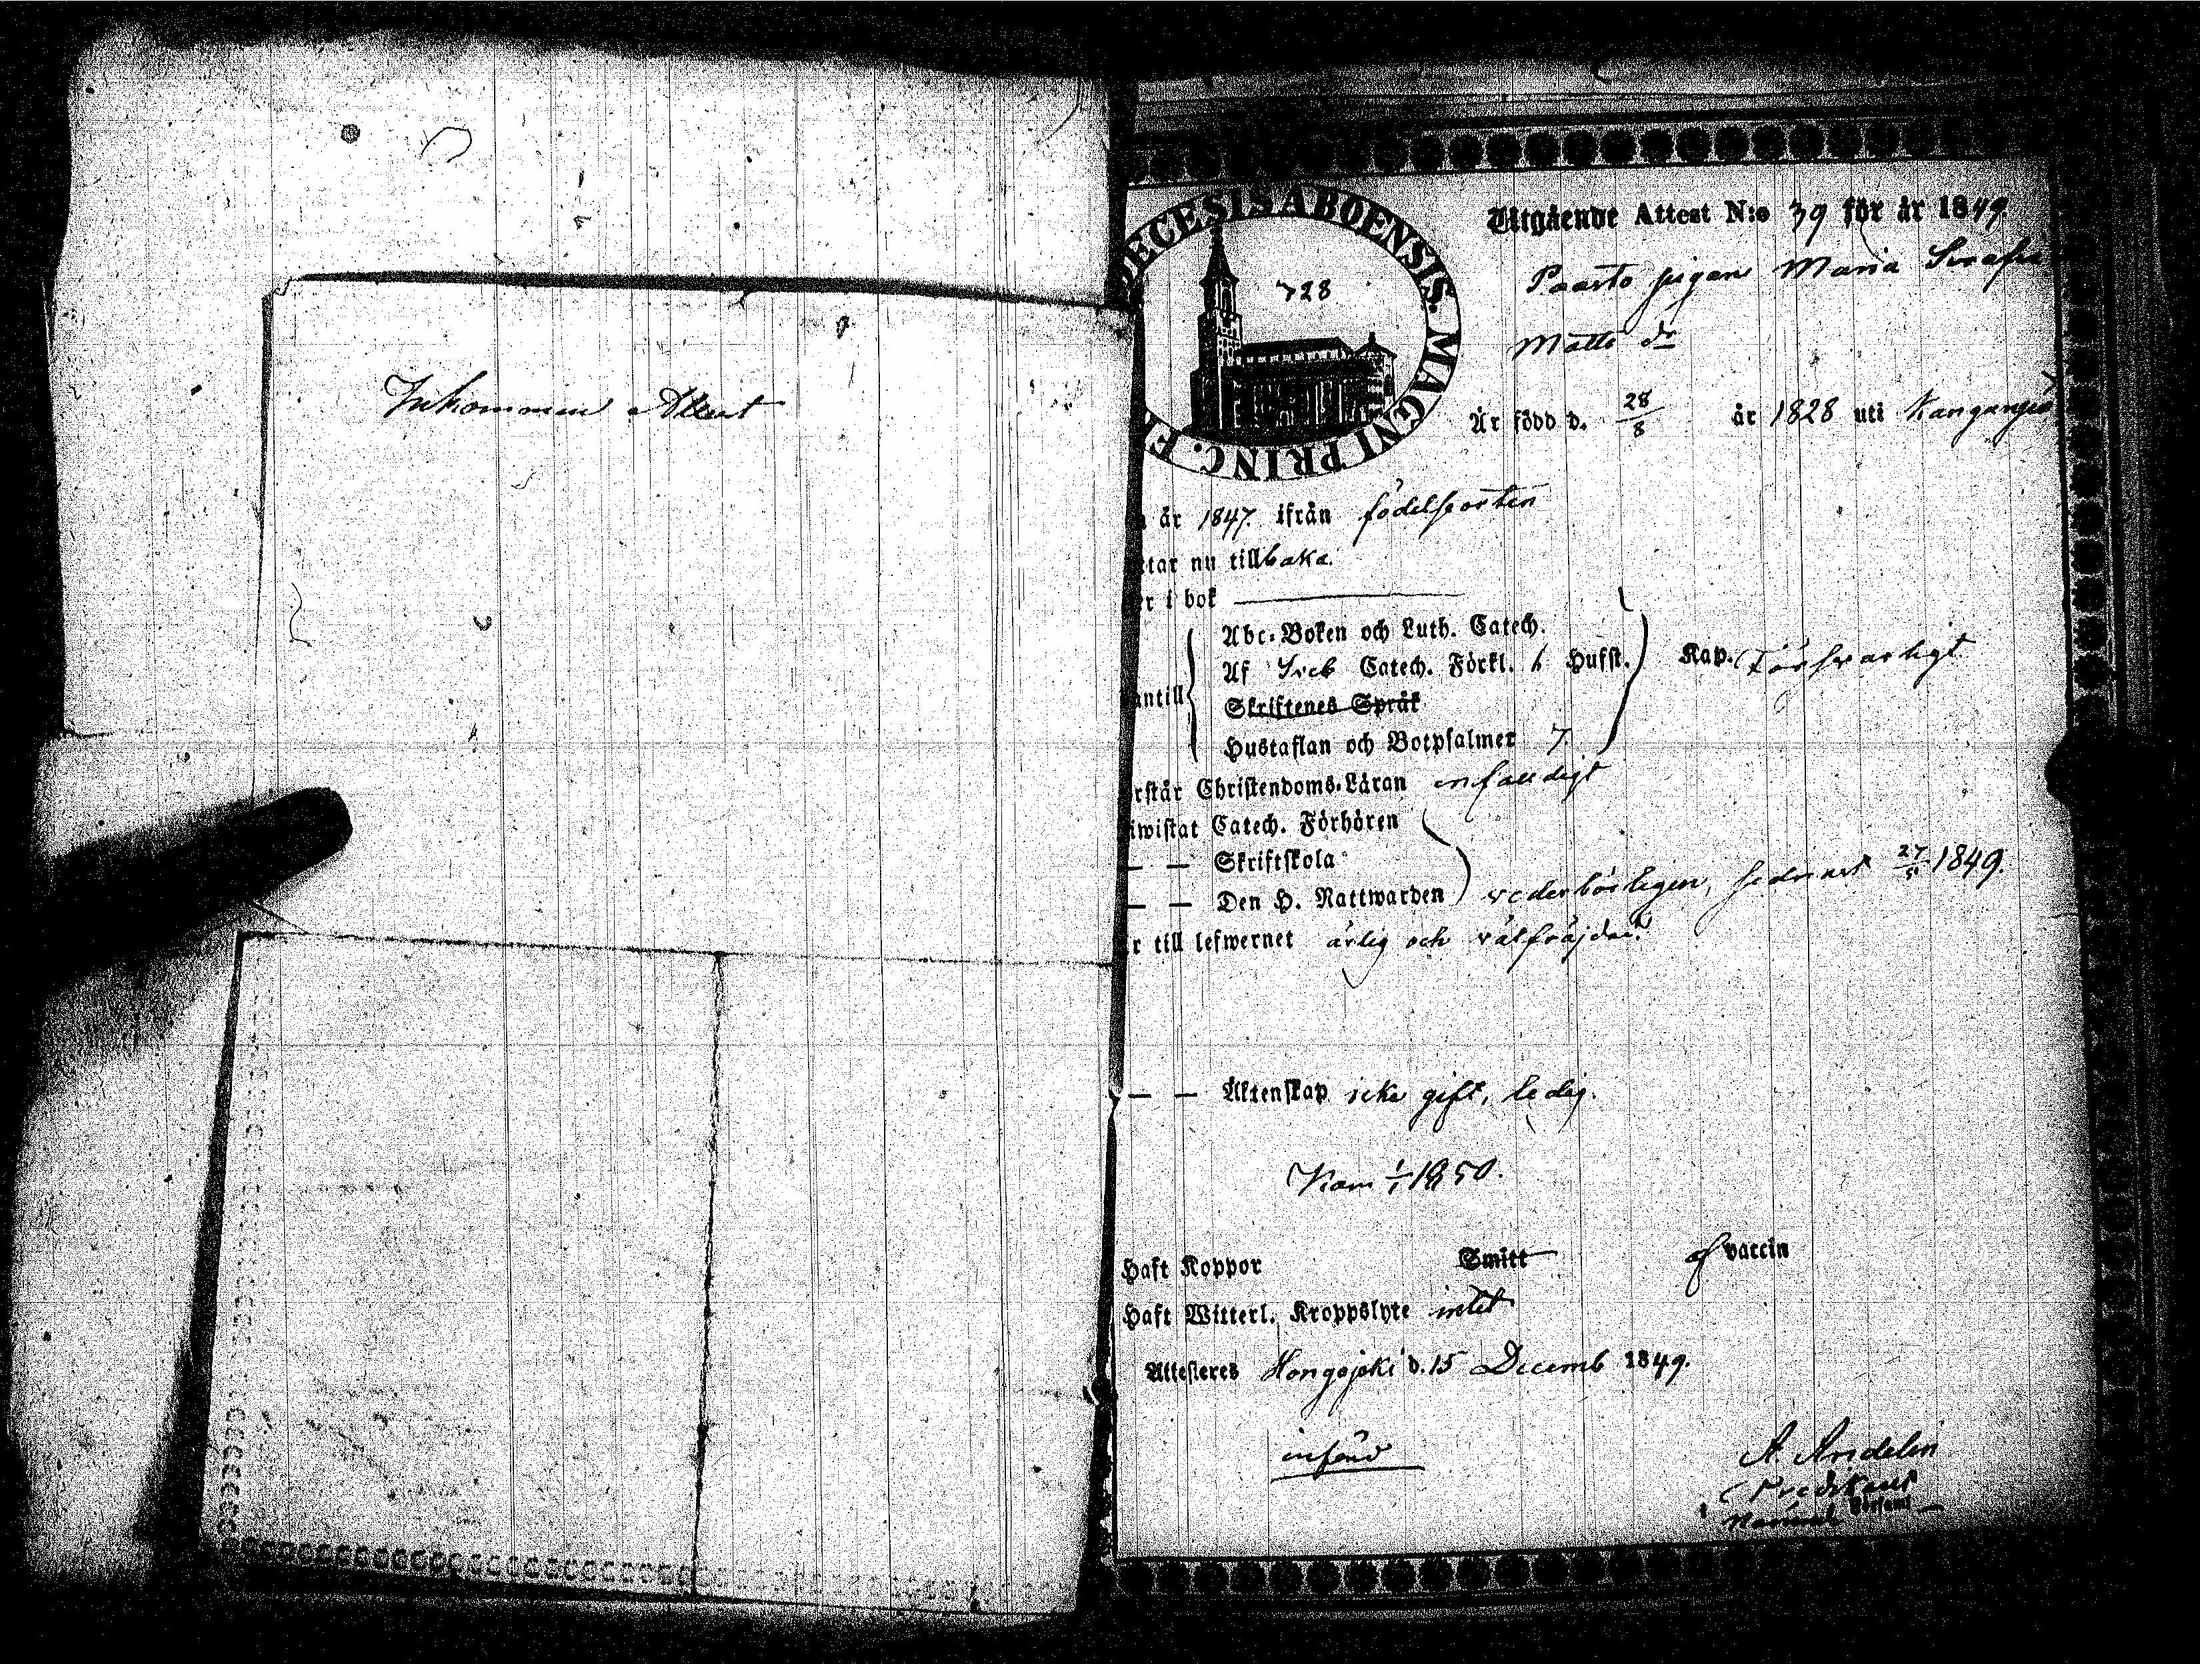 Inkommen Attest
DECESIS ABOENSIS. MAGNI PRINC. F
728
Utgående Attest N:o 39 för år 1849
Paarto pigan Maria Serafia
Matts dr
Är född d. 28/8 år 1828 uti Kangan
år 1847. ifrån födelseorten
tar nu tillbaka.
r i bok
Abc-Boken och Luth. Catech.
Af Sveb Catech. Förkl. 6 Hufst. Kap. Försvarligt.
antill
Skriftenes Språk
Hustaflan och Botpsalmer 7.
rstår Christendoms-Läran enfalldigt
iwistat Catech. Förhören
— — Skriftskola
— — Den H. Nattwarden vederbörligen, sednast 27/5 1849.
r till lefwernet ärlig och välfräjdad
— — Äktenskap icke gift, ledig.
Kom 1/1 1850.
Haft Koppor Smitt af vaccin
Haft Witterl. Kroppslyte intet
Attesteres Hongojoki d. 15 Decemb 1849.
införd
A. Andelin
Predikant
Församl